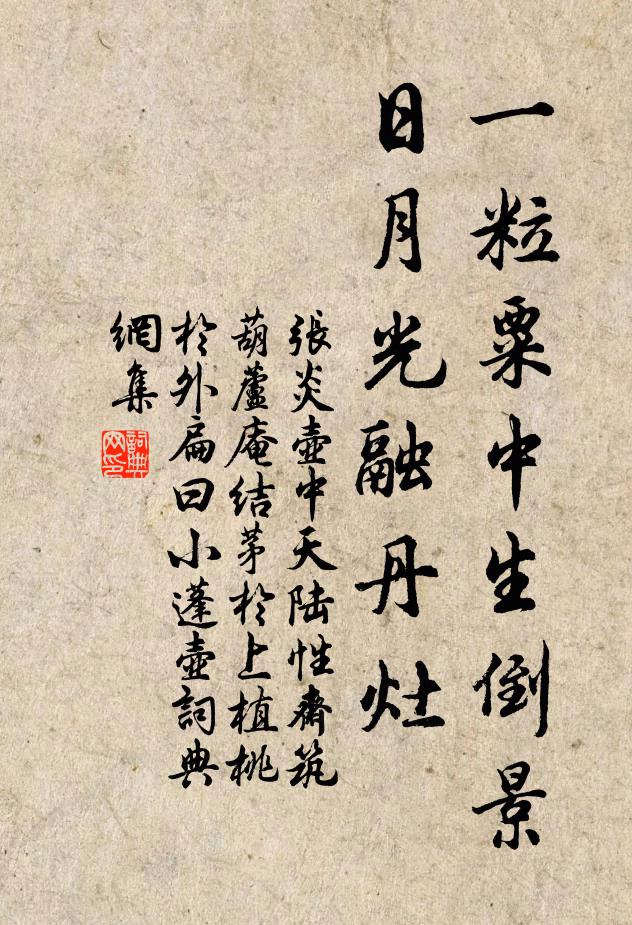 一粒粟中生倒景
日月光融丹灶
張炎壺中天陸性齋筑
葫蘆庵結茅於上植桃
於外扁曰小蓬壺詞典
網集
詞典
网印